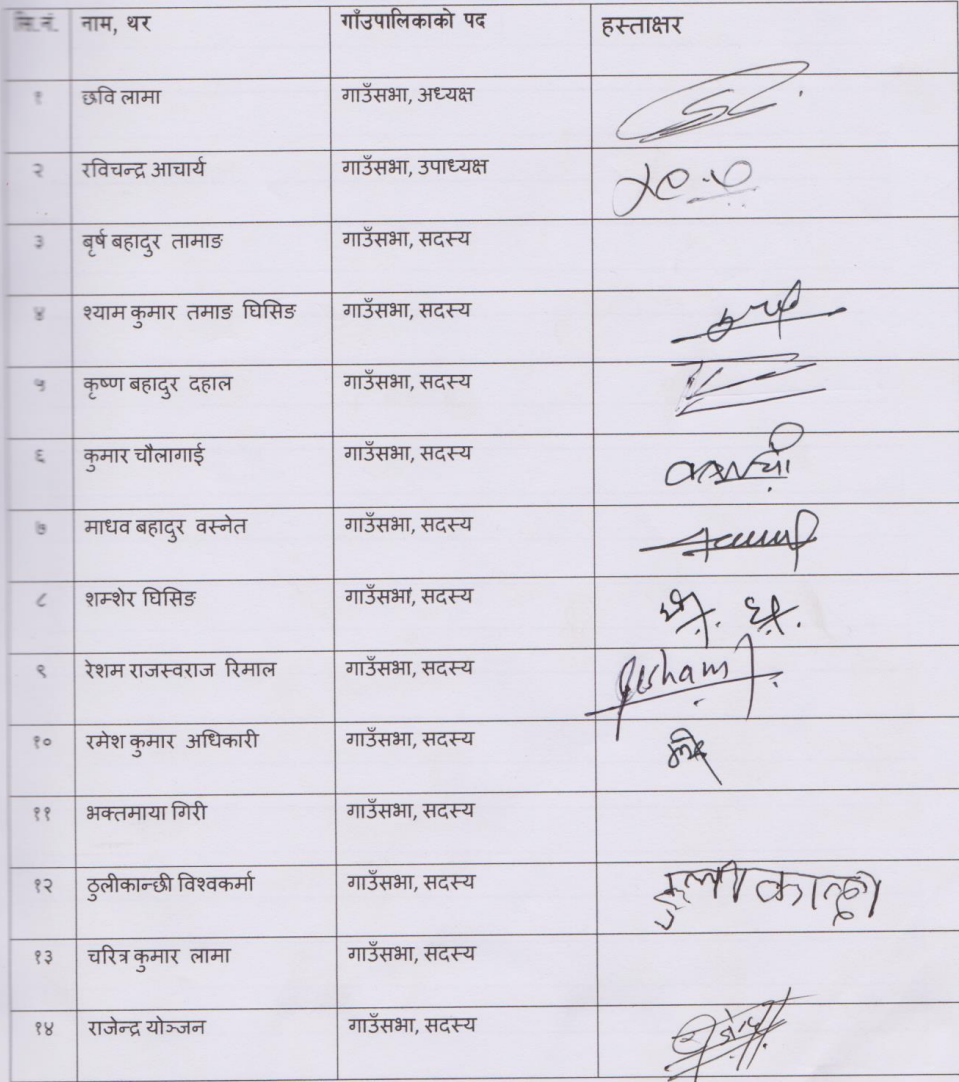 सि.नं. नाम, थर गाँउपालिकाको पद हस्ताक्षर
१ छवि लामा गाउँसभा, अध्यक्ष
२ रविचन्द्र आचार्य गाउँसभा, उपाध्यक्ष
३ बृर्ष बहादुर तामाङ गाउँसभा, सदस्य
४ श्याम कुमार तमाङ घिसिङ गाउँसभा, सदस्य
५ कृष्ण बहादुर दहाल गाउँसभा, सदस्य
६ कुमार चौलागाई गाउँसभा, सदस्य
७ माधव बहादुर वस्नेत गाउँसभा, सदस्य
८ शम्शेर घिसिङ गाउँसभा, सदस्य
९ रेशम राजस्वराज रिमाल गाउँसभा, सदस्य Resham
१० रमेश कुमार अधिकारी गाउँसभा, सदस्य
११ भक्तमाया गिरी गाउँसभा, सदस्य
१२ ठुलीकान्छी विश्वकर्मा गाउँसभा, सदस्य
१३ चरित्र कुमार लामा गाउँसभा, सदस्य
१४ राजेन्द्र योञ्जन गाउँसभा, सदस्य